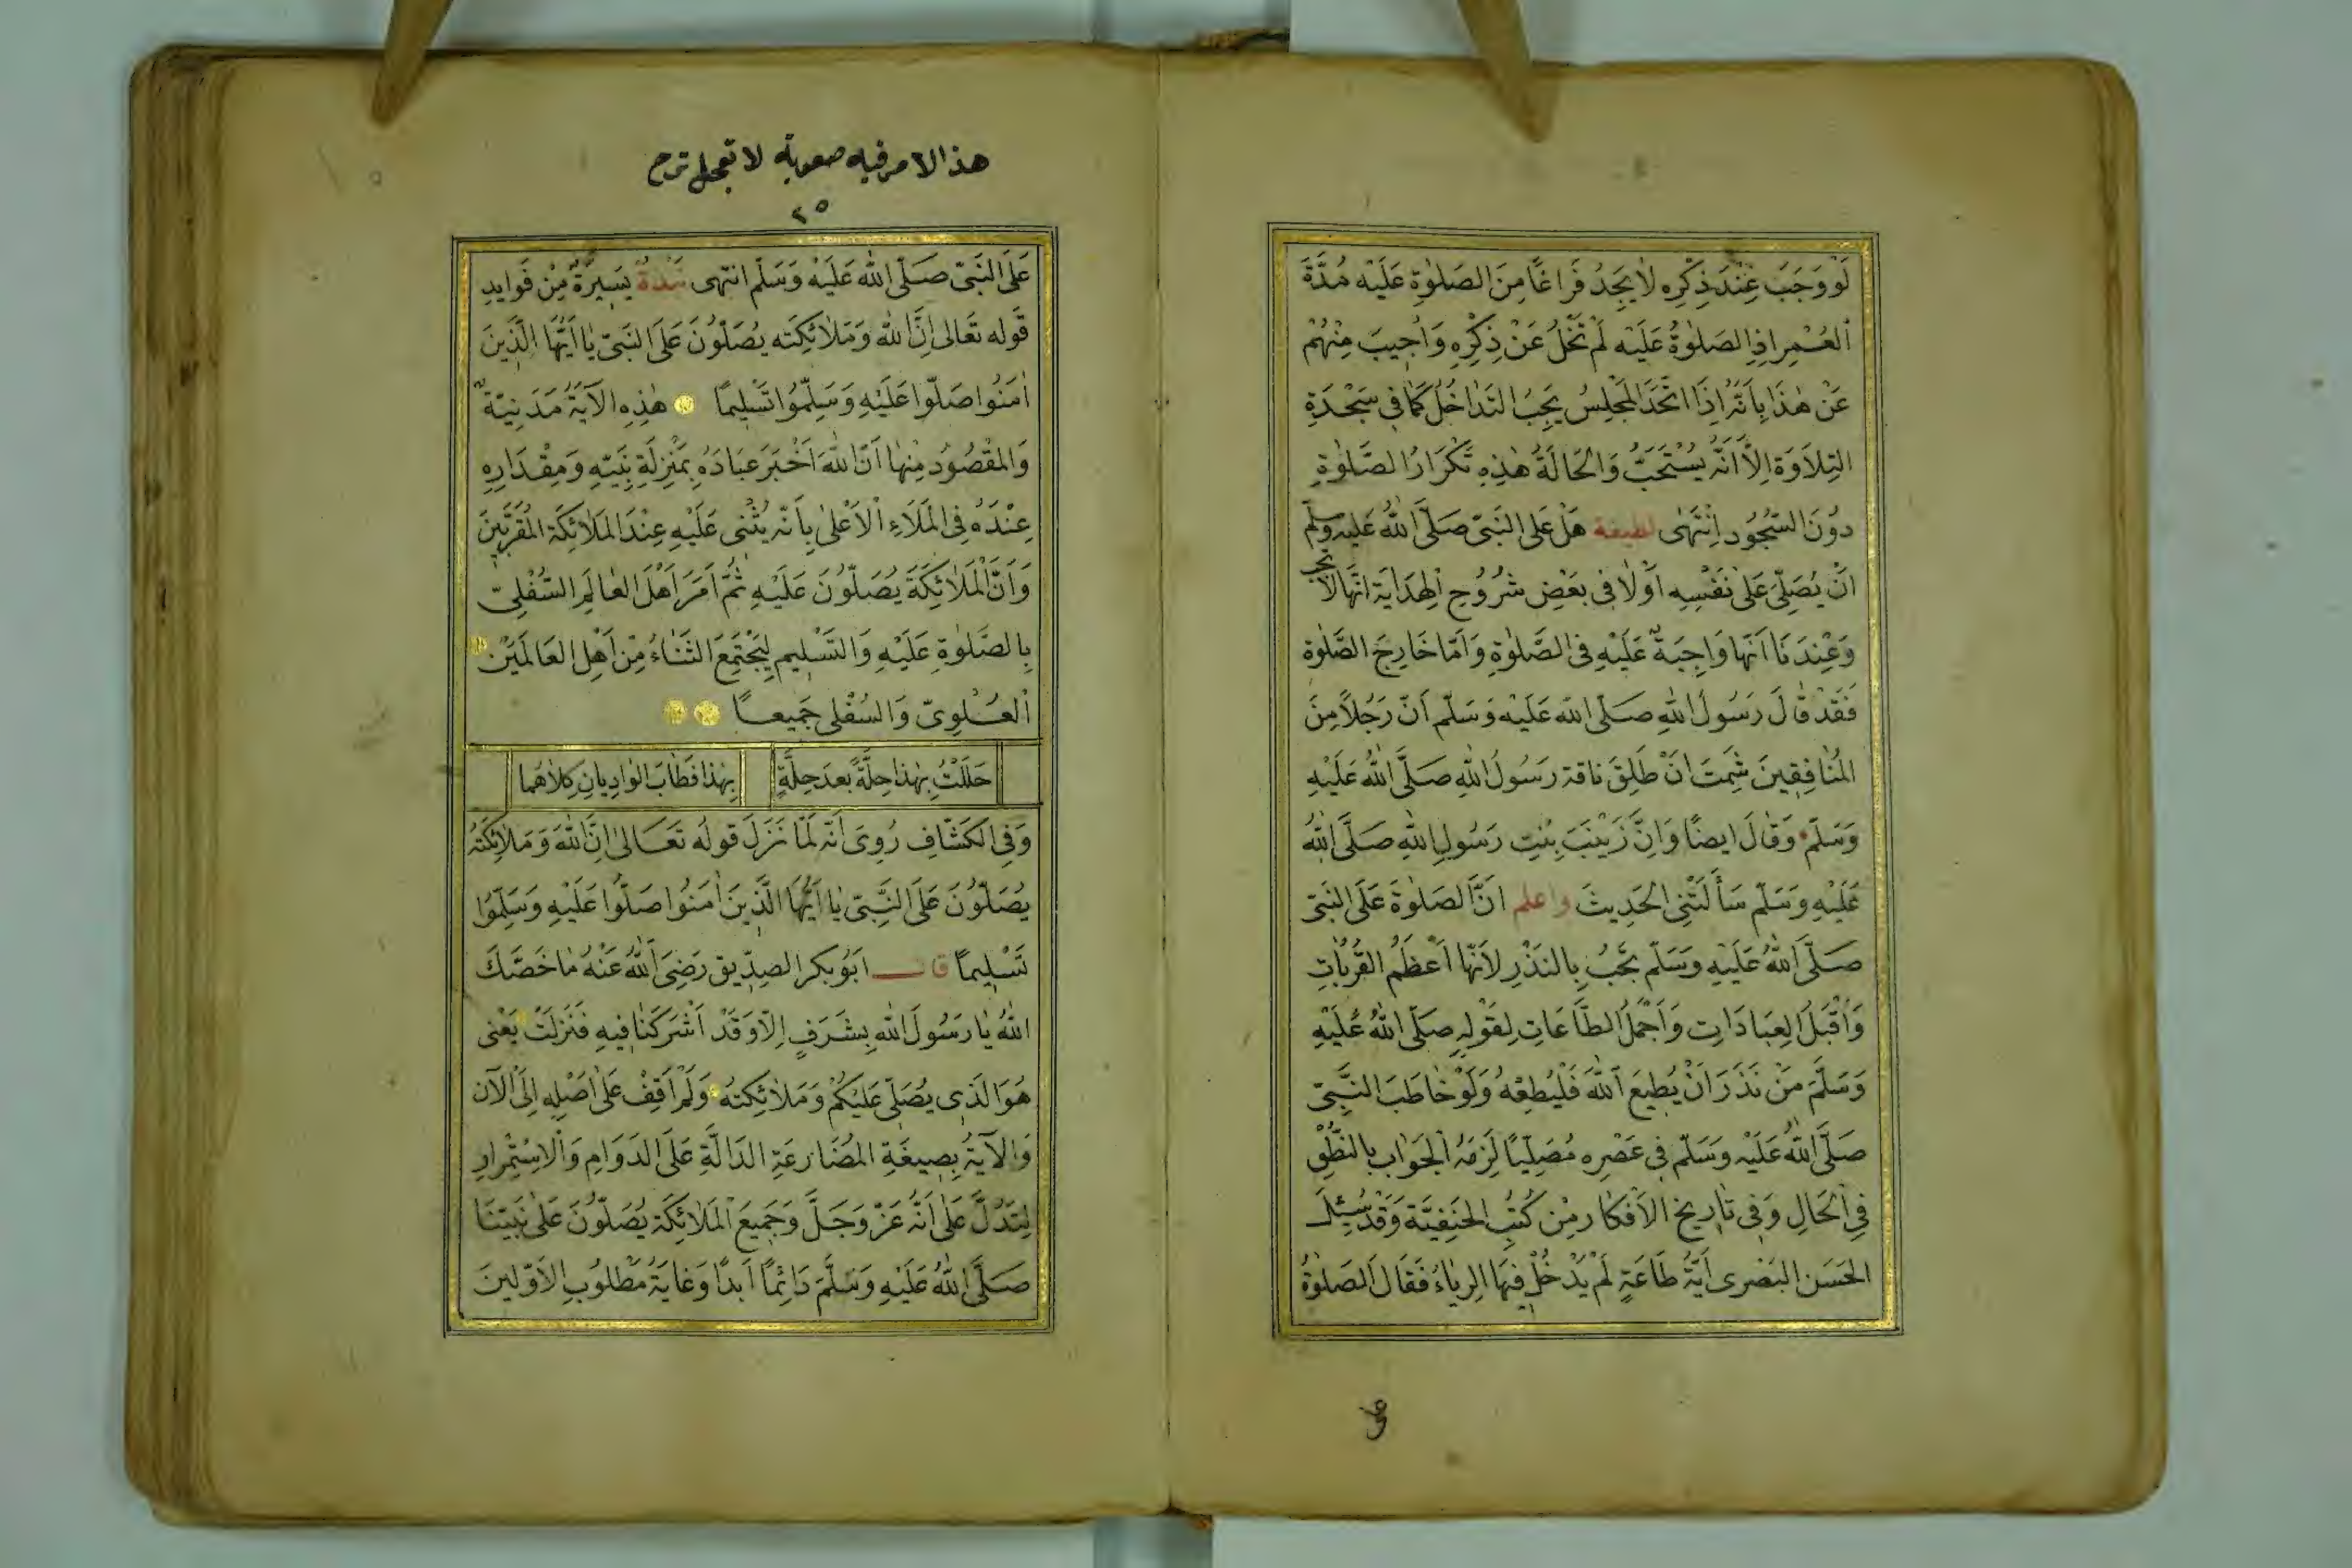 لَوْ وَجَبَ عِنْدَ ذِكْرِهِ لَا يَجِدُ فَرَاغًا مِنَ الصَلٰوةِ عَلَيْهِ مُدَّةَ
اَلعُمْرِ اِذِ الصَلٰوةُ عَلَيْهِ لَمْ تَخْلُ عَنْ ذِكْرِهِ وَاُجِيبَ مِنْهُمْ
عَنْ هٰذَا بِاَنَّهُ اِذَا اتَّحَدَ المَجْلِسُ يَجِبُ التَدَاخُلُ كَمَا فِى سَجْدَةِ
التِلَاوَةِ اِلَّا اَنَّهُ يُسْتَحَبُّ وَالْحَالَةُ هٰذِهِ تَكْرَارُ الصَّلٰوةِ
دُوْنَ السُّجُودِ اِنْتَهٰى لطيفة هَلْ عَلَى النَبِىّ صَلَّى اللهُ عَلَيْهِ وسلم
اَنْ يُصَلِّىَ عَلٰى نَفْسِهِ اَوْ لَا فِى بَعْضِ شُرُوْحِ اَلهِدَايَةِ اَنَّهَا لَا تجب
وَعِنْدَنَا اَنَّهَا وَاجِبَةٌ عَلَيْهِ فِى الصَّلٰوةِ وَاَمَّا خَارِجَ الصَّلٰوةِ
فَقَدْ قَالَ رَسُولُ اللهِ صَلَّى الله عَلَيْهِ وَسَلَّم اَنَّ رَجُلًا مِنَ
المُنَافِقِينَ شَمِتَ اَنْ طَلِقَ نَاقة رَسُولُ اللهِ صَلَّى اللهُ عَلَيْهِ
وَسَلَّم وَقَالَ اَيضًا وَاِنَّ زَيْنَبَ بِنْتِ رَسُولِ اللهِ صَلَّى اللهُ
عَلَيْهِ وَسَلَّم سَأَلَتْنِى الْحَدِيثَ واعلم اَنَّ الصَلٰوةَ عَلَى النَبِىّ
صَلَّى اللهُ عَلَيْهِ وَسَلَّم تَجِبُ بِالنَذْرِ لِاَنَّهَا اَعْظَمُ القُرُبَاتِ
وَاَقْبَلُ العِبَادَاتِ وَاَجْمَلُ الطَّاعَاتِ لِقَوْلِهِ صَلَّى اللهُ عَلَيْهِ
وَسَلَّمَ مَنْ نَذَرَ اَنْ يُطِيعَ اللهَ فَلْيُطِعْهُ وَلَوْ خَاطَبَ النَّبِىّ
صَلَّى اللهُ عَلَيْهِ وَسَلَّم فِى عَصْرِهِ مُصَلِّيًا لَزِمَهُ الْجَوَاب بِالنُّطْقِ
فِى الْحَالِ وَفِى تَارِيخ الاَفكَار مِنْ كُتُبِ الحَنِفِيَّةِ وَقَدْ سُئِلَ
الحَسَن البَصْرِى اَيَّةُ طَاعَةٍ لَمْ يَدْخُلْ فِيهَا الرِيَاءُ فَقَالَ الصَلٰوةُ
على
هذا الامر فيه صعوبة لا تعجل
٢٥
عَلَى النَبِىّ صَلَّى اللهُ عَلَيْهِ وَسَلَّم انتهى نبذة يَسِيرَةٌ مِنْ فَوَايِدِ
قَوله تَعَالى اِنَّ اللهَ وَمَلَائِكَتَه يُصَلُّوْنَ عَلَى النَبِىّ يَا اَيُّهَا الَّذِينَ
اٰمَنُوا صَلُّوا عَلَيْهِ وَسَلِّمُوا تَسْلِيمًا هٰذِهِ الآيَةُ مَدَنِيَّةٌ
وَالمَقْصُوُد مِنْهَا اَنَّ اللهَ اَخْبَرَ عِبَادَهُ بِمَنْزِلَةِ نَبِيِّهِ وَمِقْدَارِهِ
عِنْدَهُ فِى الْمَلَاءِ اْلاَعْلىٰ بِاَنَّهُ يُثْنِى عَلَيْهِ عِنْدَ المَلَائِكَةِ المُقَرَّبِينَ
وَاَنَّ الْمَلَائِكَةَ يُصَلُّوْنَ عَلَيْهِ ثُمَّ اَمَرَ اَهْلَ العَالَمِ السُّفْلِىّ
بِالصَّلٰوةِ عَلَيْهِ وَالتَسْلِيمِ لِيَجْتَمِعَ الثَنَاءُ مِنْ اَهْلِ العَالَمَيْنِ
اَلعُلْوِىّ وَالسُفْلِى جَمِيعًا
حَلَلْتُ بِهٰذَا حِلَّةً بعدَ حِلَّةٍ بِهٰذَا فَطَابَ الوَادِيَانِ كِلَاهُمَا
وَفِى الكَشَّافِ رُوِىَ اَنَّهُ لَمَّا نَزَلَ قوله تَعَالىٰ اِنَّ اللهَ وَمَلَائِكَتَهُ
يُصَلُّوْنَ عَلَى النَّبِىّ يَا اَيُّهَا الَّذِينَ اٰمَنُوا صَلُّوا عَلَيْهِ وَسَلِّمُوا
تَسْلِيمًا قال اَبُوبكر الصِدِّيق رَضِىَ اللهُ عَنْهُ مَا خَصَّكَ
اللهُ يَا رَسُولَ اللهِ بِشَرَفٍ اِلَّا وَقَدْ اَشْرَكَنَا فِيهِ فَنَزَلَتْ يَعْنِى
هُوَ الَذِى يُصَلِّى عَلَيْكُمْ وَمَلَائِكَتُهُ وَلَمْ اَقِفْ عَلٰى اَصْلِهِ اِلَى الْآن
وَالآيَةُ بِصِيغَةِ المُضَارِعَةِ الدَالَّةِ عَلَى الدَوَامِ وَالاِسْتِمْرَارِ
لِتَدُلَّ عَلٰى اَنَّهُ عَزَّ وَجَلَّ وَجَمِيعَ الْمَلَائِكَةِ يُصَلُّوْنَ عَلٰى نَبِيِّنَا
صَلَّى اللهُ عَلَيْهِ وَسَلَّمَ دَائِمًا اَبَدًا وَغَايَةُ مَطْلُوبِ الاَوَّلِينَ